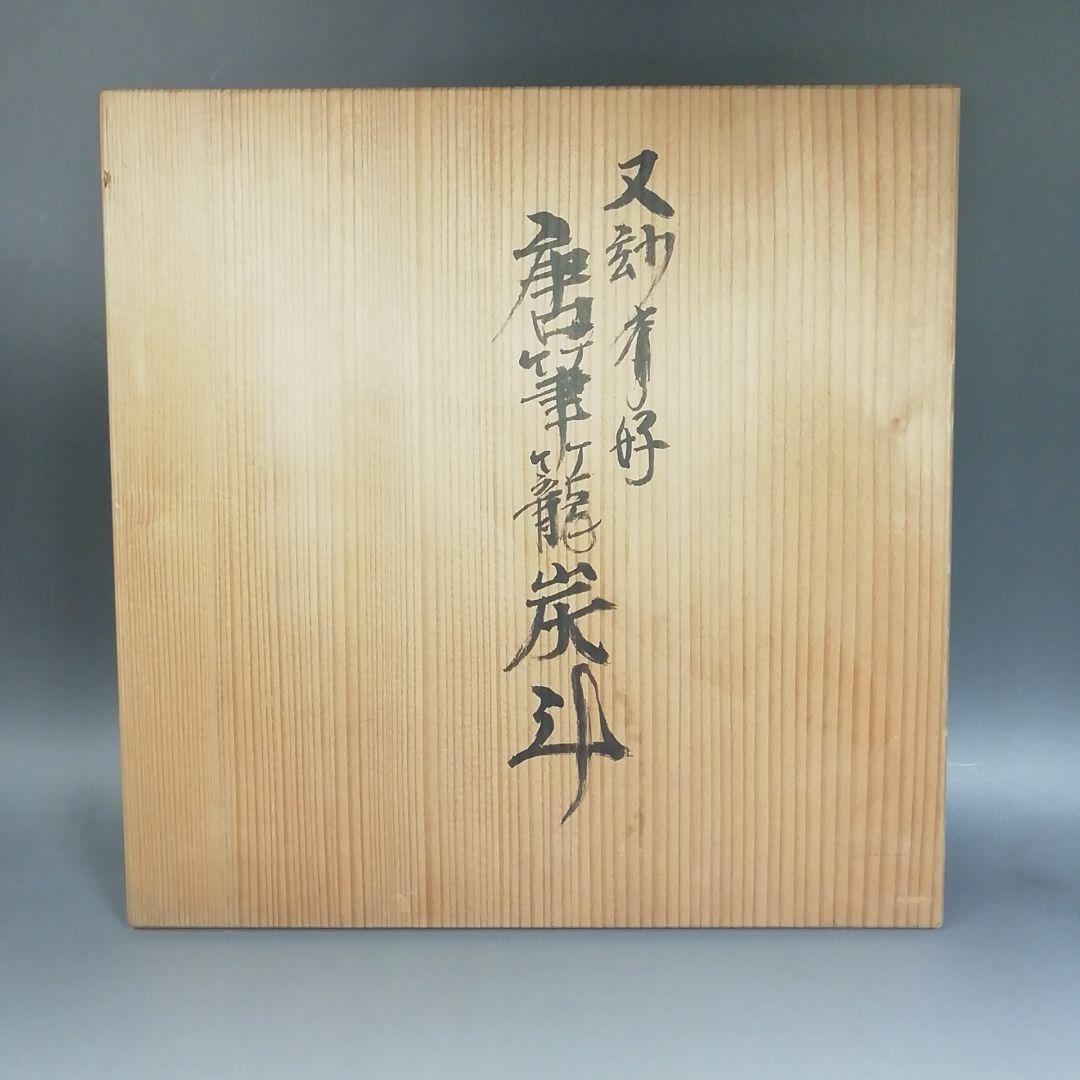 又玅斎好
唐筆籠炭斗